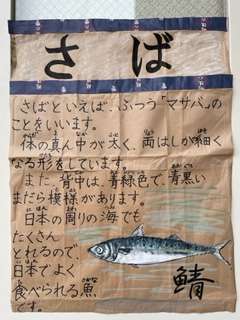 さば
さばといえば、ふつう「マサバ」の
ことをいいます。
体の真ん中が太く、両はしが細く
なる形をしています。
また、背中は、青緑色で、青黒い
まだら模様があります。
日本の周りの海でも
たくさん
とれるので、
日本でよく
食べられる魚
です。
鯖